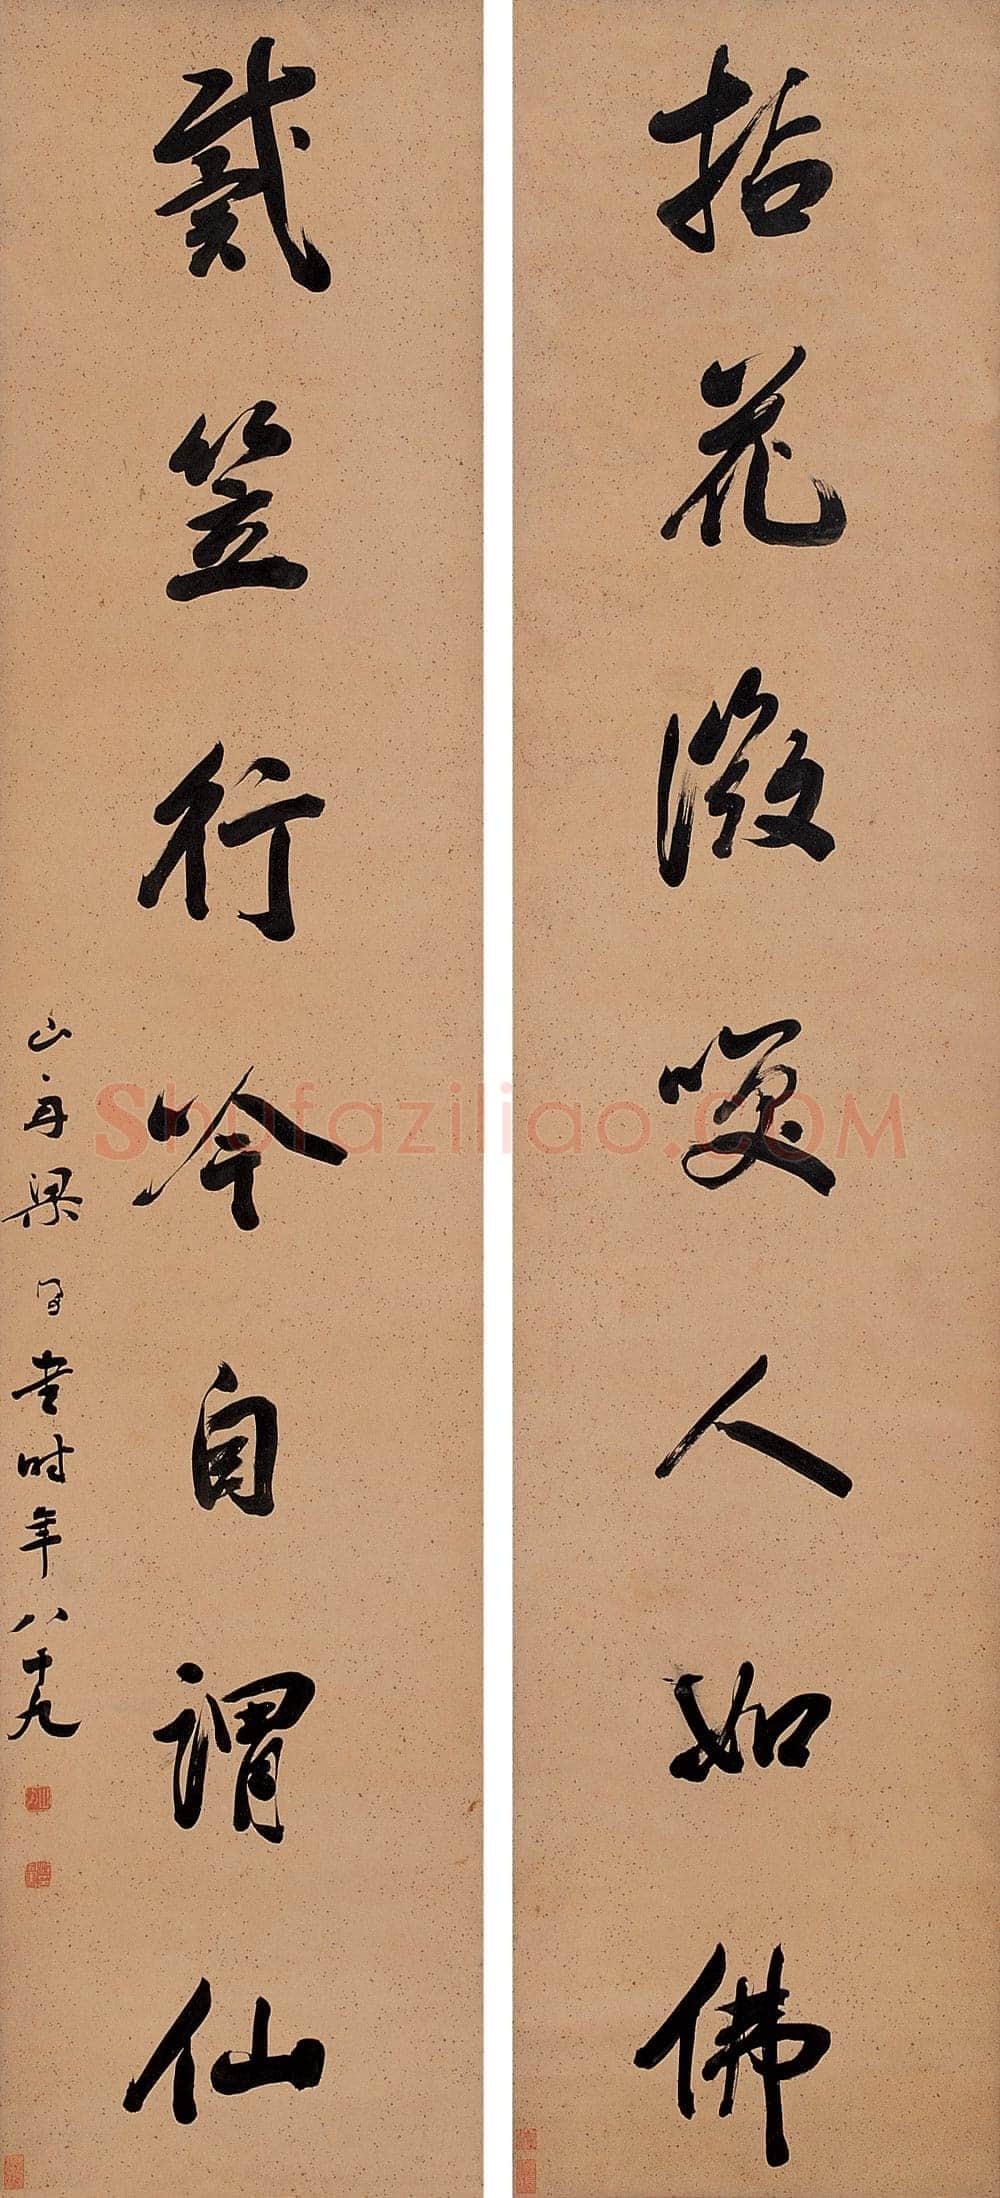 拈花微笑人如佛
戴笠行吟自谓仙
山舟梁同书时年八十九
Shufaziliao.COM